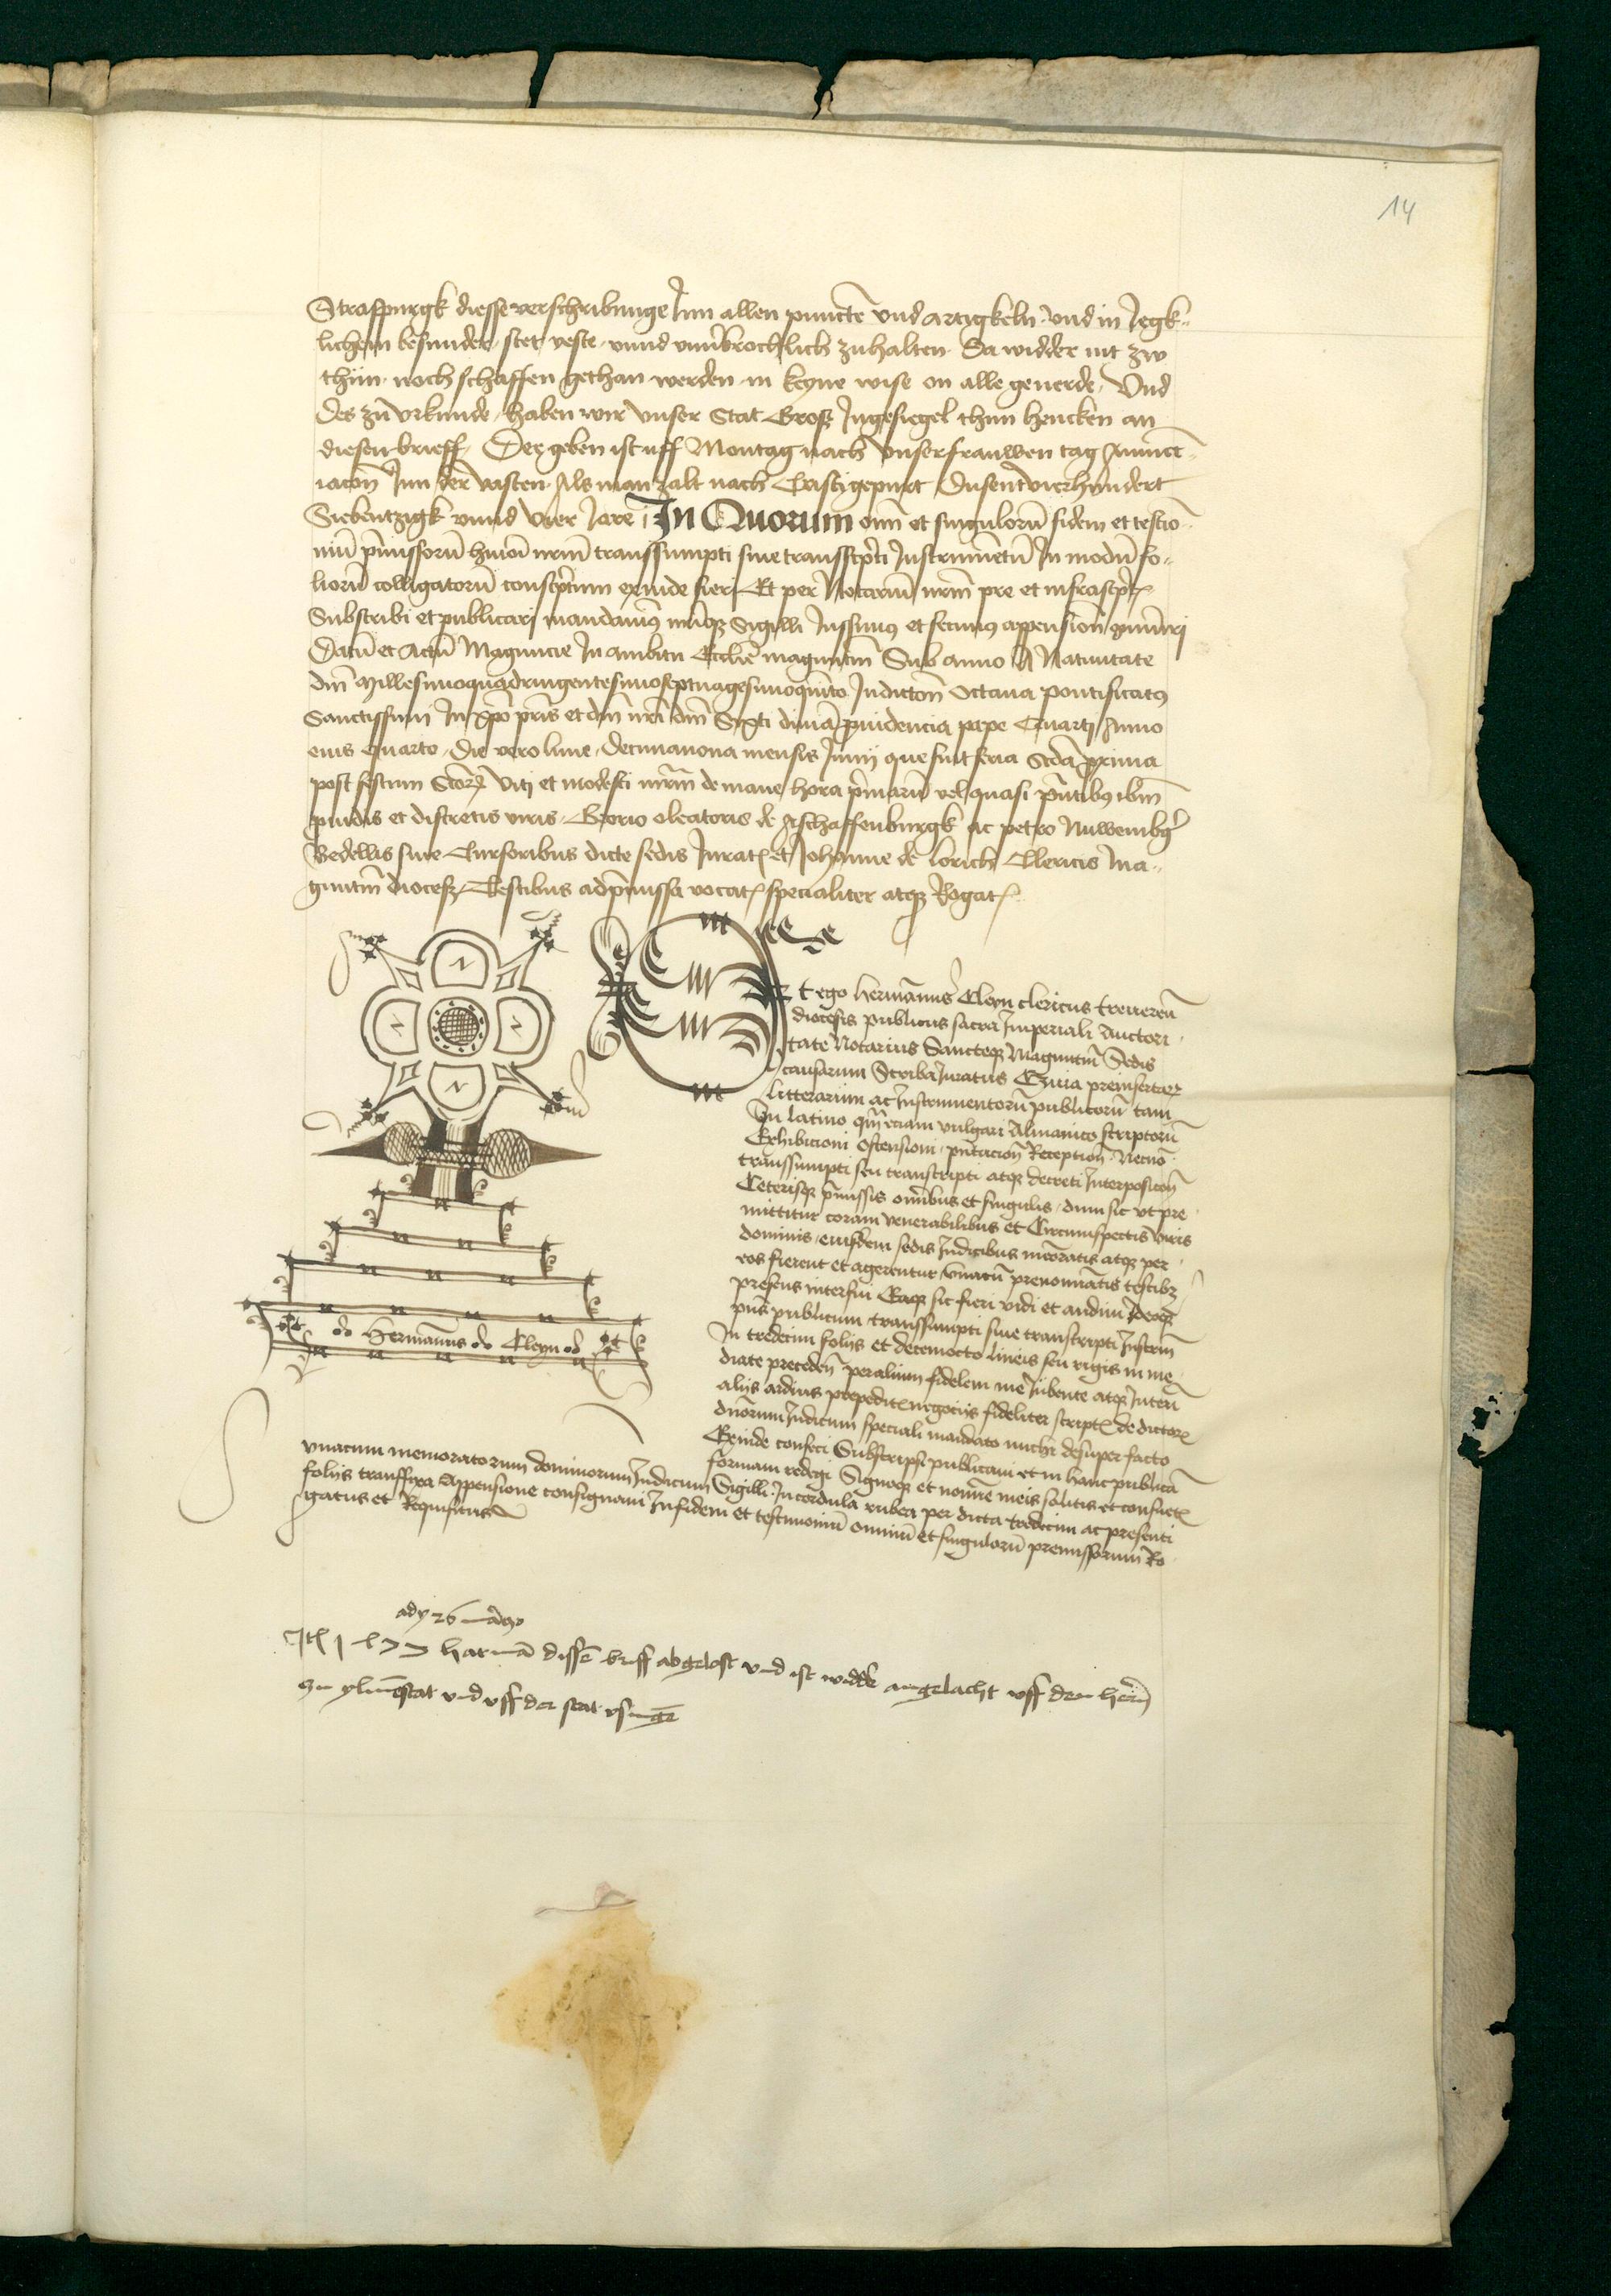 14
Straspurgk diesse verschribunge Inn allen punctē vnd artigkeln vnd in Iegk„
lichem besunder stet veste vnnd vnuerbrochlich zuhalten Da widder nit zw
thun noch schaffen gethan werden in keyne wise on alle geuerde Vnd
Des zū vrkunde haben wir vnser Stat Groß Ingesiegel thun hencken an
diesen brieff Der geben ist uff Montag nach vnser frauwen tag Anunct„
iacōn Inn der vasten Als man zalt nach Cristi gepurt Dusent vierhundert
Siebentzigk vnnd vier Iare In Quorum oīm et singulorū fidem et testio„
niū p̄missorū hmōi nrm̄ transsumpti siue transscp̄ti Instrumētū In modū fo„
liorū colligatorū conscp̄tum exinde fieri Et per Notariū nrm̄ pre et infrascp̄t
Substribi et publicari mandauimꝰ nr̄iqꝫ Sigilli Iussimꝰ et fecimꝰ appensiōn
Datū et Actū Maguncie In ambitu Ecclīe magūtiñ Sub anno A Natiuitate
dn̄i Millesimoquadringentesimoseptuagesimoquīto Indictōn Octaua pontificatꝰ
Sanctissimi In xp̄o pr̄is et dn̄i nr̄i dn̄i Sixti diuīa prouidencia pape Quarti Anno
eius quarto Die vero lune decimanona mensis Iunij que fuit feria Scd̄a proxima
post festum Sctōrꝫ Viti et modesti mr̄m de mane hora p̄marū vel quasi p̄ntibꝰ ibm̄
prouidis et discretis viris Georio oleatoris de Aschaffenburgk ac petro Nuwenbḡ
Bedellis siue Cursoribus dicte sedis Iurat et Iohanne de lorich Clericis Ma„
guntiñ diocesꝫ Testibus ad p̄missa vocat specialiter atqꝫ Rogat
Et ego Hermannus Cleyn clericus treuereñ
diocesis publicus sacra Imperiali Auctori
tate Notarius Sancteqꝫ Maguntiñ Sedis
causarum Scriba Iuratus Quia preinsertarꝫ
litterarum ac Instrumentorū publicorū tam
In latino qm̄ etiam vulgari Almanico scriptorū
Exhibicioni ostensioni p̄ntacioñ Receptioñ Necnō
transsumpti seu transcripti atqꝫ decreti Interpositoñ
Ceterisqꝫ p̄missis omībus et singulis dum sic vt pre
mittitur coram venerabilibus et Circumspectis viris
dominis eiusdem sedis Iudicibus memoratis atqꝫ per
eos fierent et agerentur vnacū prenomīatis testibꝫ
presens interfui Eaqꝫ sic fieri vidi et audiui Ideoqꝫ
pn̄s publicum transsumpti siue transcripti Instrm̄
In tredecim folijs et decemocto lineis seu rigis in me
diate precedeñ per alium fidelem me Iubente atqꝫ Interī
alijs ardius prepedit negocijs fideliter script de dictorꝫ
dn̄orum Iudicum speciali mandato michi desuper facto
Exinde confeci Subscripsi publicaui et in hanc publicā
formam redegi Signoqꝫ et nomīe meis solitis et consuet
vnacum memoratorum dominorum Iudicum Sigilli In cordula rubea per dicta tredecim ac presenti
folijs transfixa Appensione consignaui In fidem et testimoniū omniū et singulorū premissorum Ro
gatus et Requisitus
Hermannus Cleyn
ady 26 marzo
It hat man dissē briff abgelost vnd ist widdē angelacht vff den herñ
zu ylmestat vnd vff der stat